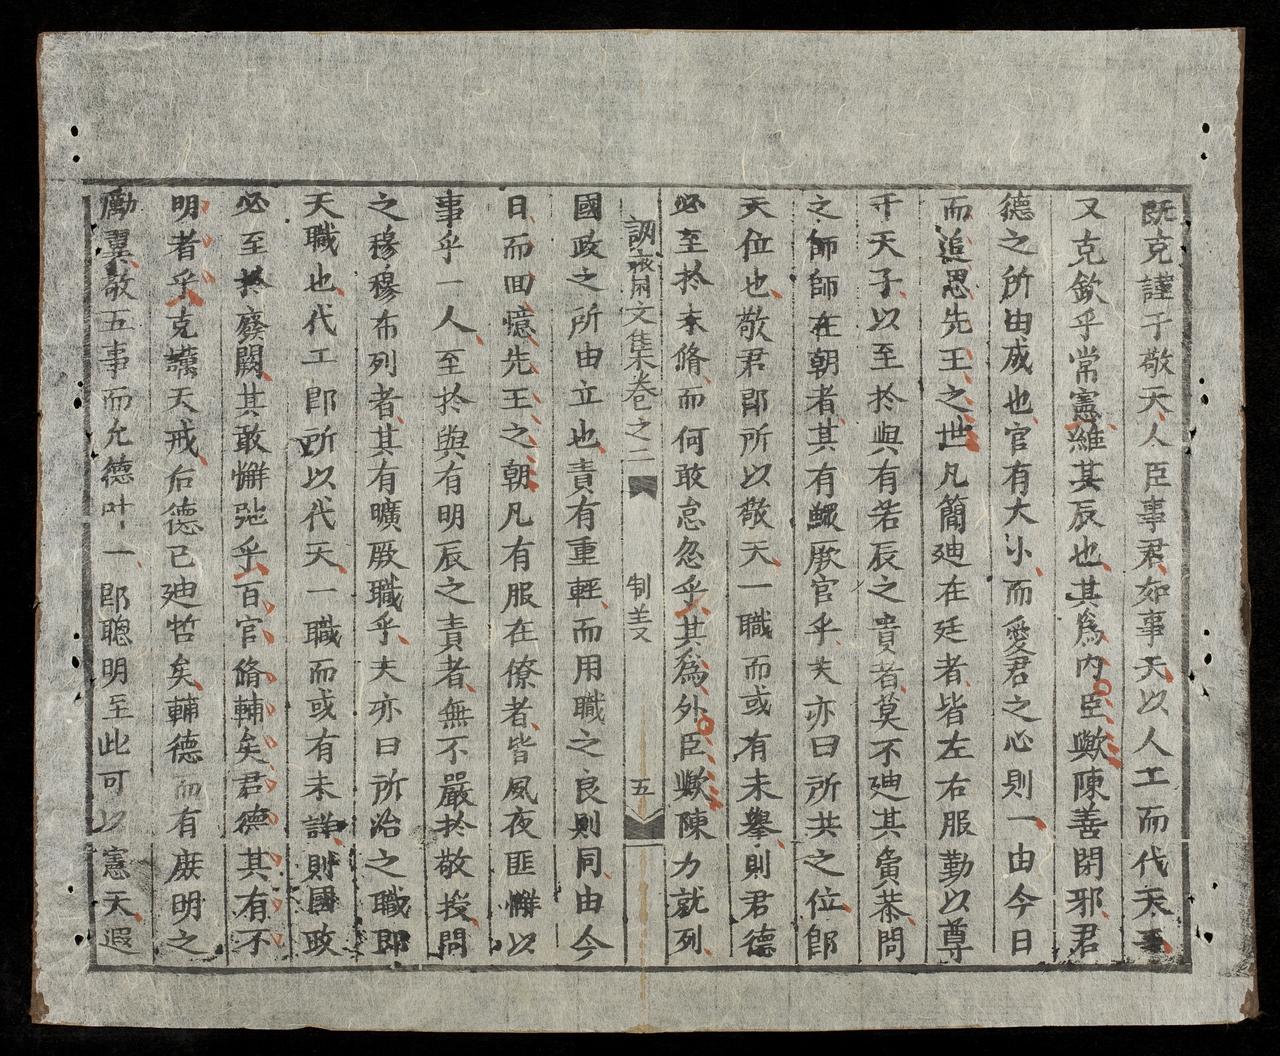 既克謹于敬天人臣事君如事天以人工而代天工
又克欽乎常憲維其辰也其爲内臣歟陳善閉邪君
德之所由成也官有大小而愛君之心則一由今日
而追思先王之世凡簡廸在廷者皆左右服勤以尊
于天子以至於與有若辰之責者莫不廸其寅恭問
之師師在朝者其有鰥厥官乎夫亦曰所共之位即
天位也敬君即所以敬天一職而或有未舉則君德
必至於未脩而何敢怠忽乎其爲外臣歟陳力就列
文集卷之二 制 五
國政之所由立也責有重輕而用職之良則同由今
日而回憶先王之朝凡有服在僚者皆夙夜匪懈以
事乎一人至於與有明辰之責者無不嚴於敬授問
之穆穆布列者其有曠厥職乎夫亦曰所治之職即
天職也代工即所以代天一職而或有未詳則國政
必至於廢闕其敢懈弛乎百官脩輔矣君德其有不
明者乎克謹天戒后德已廸哲矣輔德而有厥明之
勵翼敬五事而允德叶一即聰明至此可以憲天遐